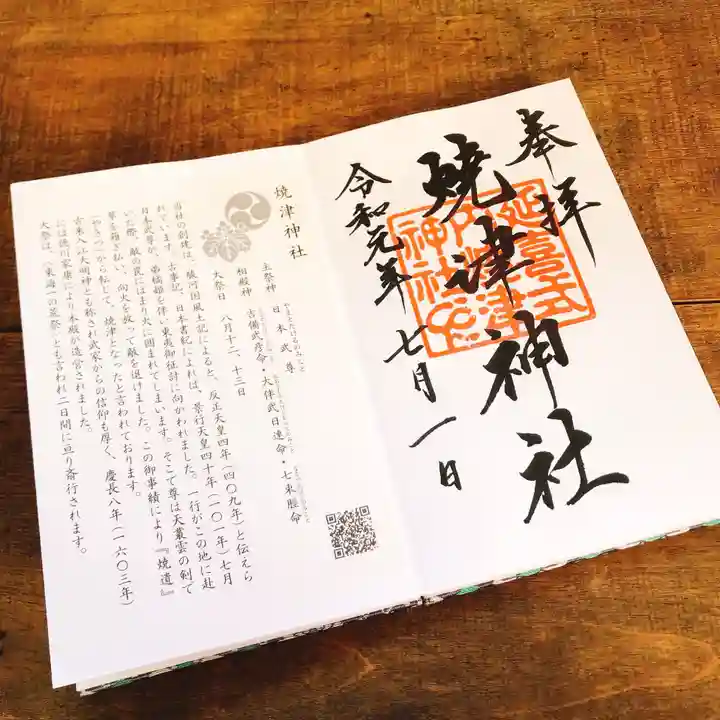 奉拝
焼津神社
令和元年七月一日
延喜式
内焼津
神社之
焼津神社
主祭神 日本武尊
やまとたけるのみこと
相殿神 吉備武彦命・大伴武日連命・七束脛命
大祭日 八月十二、十三日
当社の創建は、駿河国風土記によると、反正天皇四年（四〇九年）と伝えら
れています。古事記、日本書紀によれば、景行天皇四十年（一〇一年）七月
日本武尊が、弟橘媛を伴い東夷御征討に向かわれました。一行がこの地に赴
いた際、敵の罠にはまり火に囲まれてしまいます。そこで尊は天叢雲の剣で
草を薙ぎ払い、向火を放って敵を退けました。この御事績により『焼遺』
（やきつ）から転じて、焼津となったと言われております。
古来入江大明神とも称され武家からの信仰も厚く、慶長八年（一六〇三年）
には徳川家康により本殿が造営されました。
大祭は、（東海一の荒祭）とも言われ二日間に亘り斎行されます。